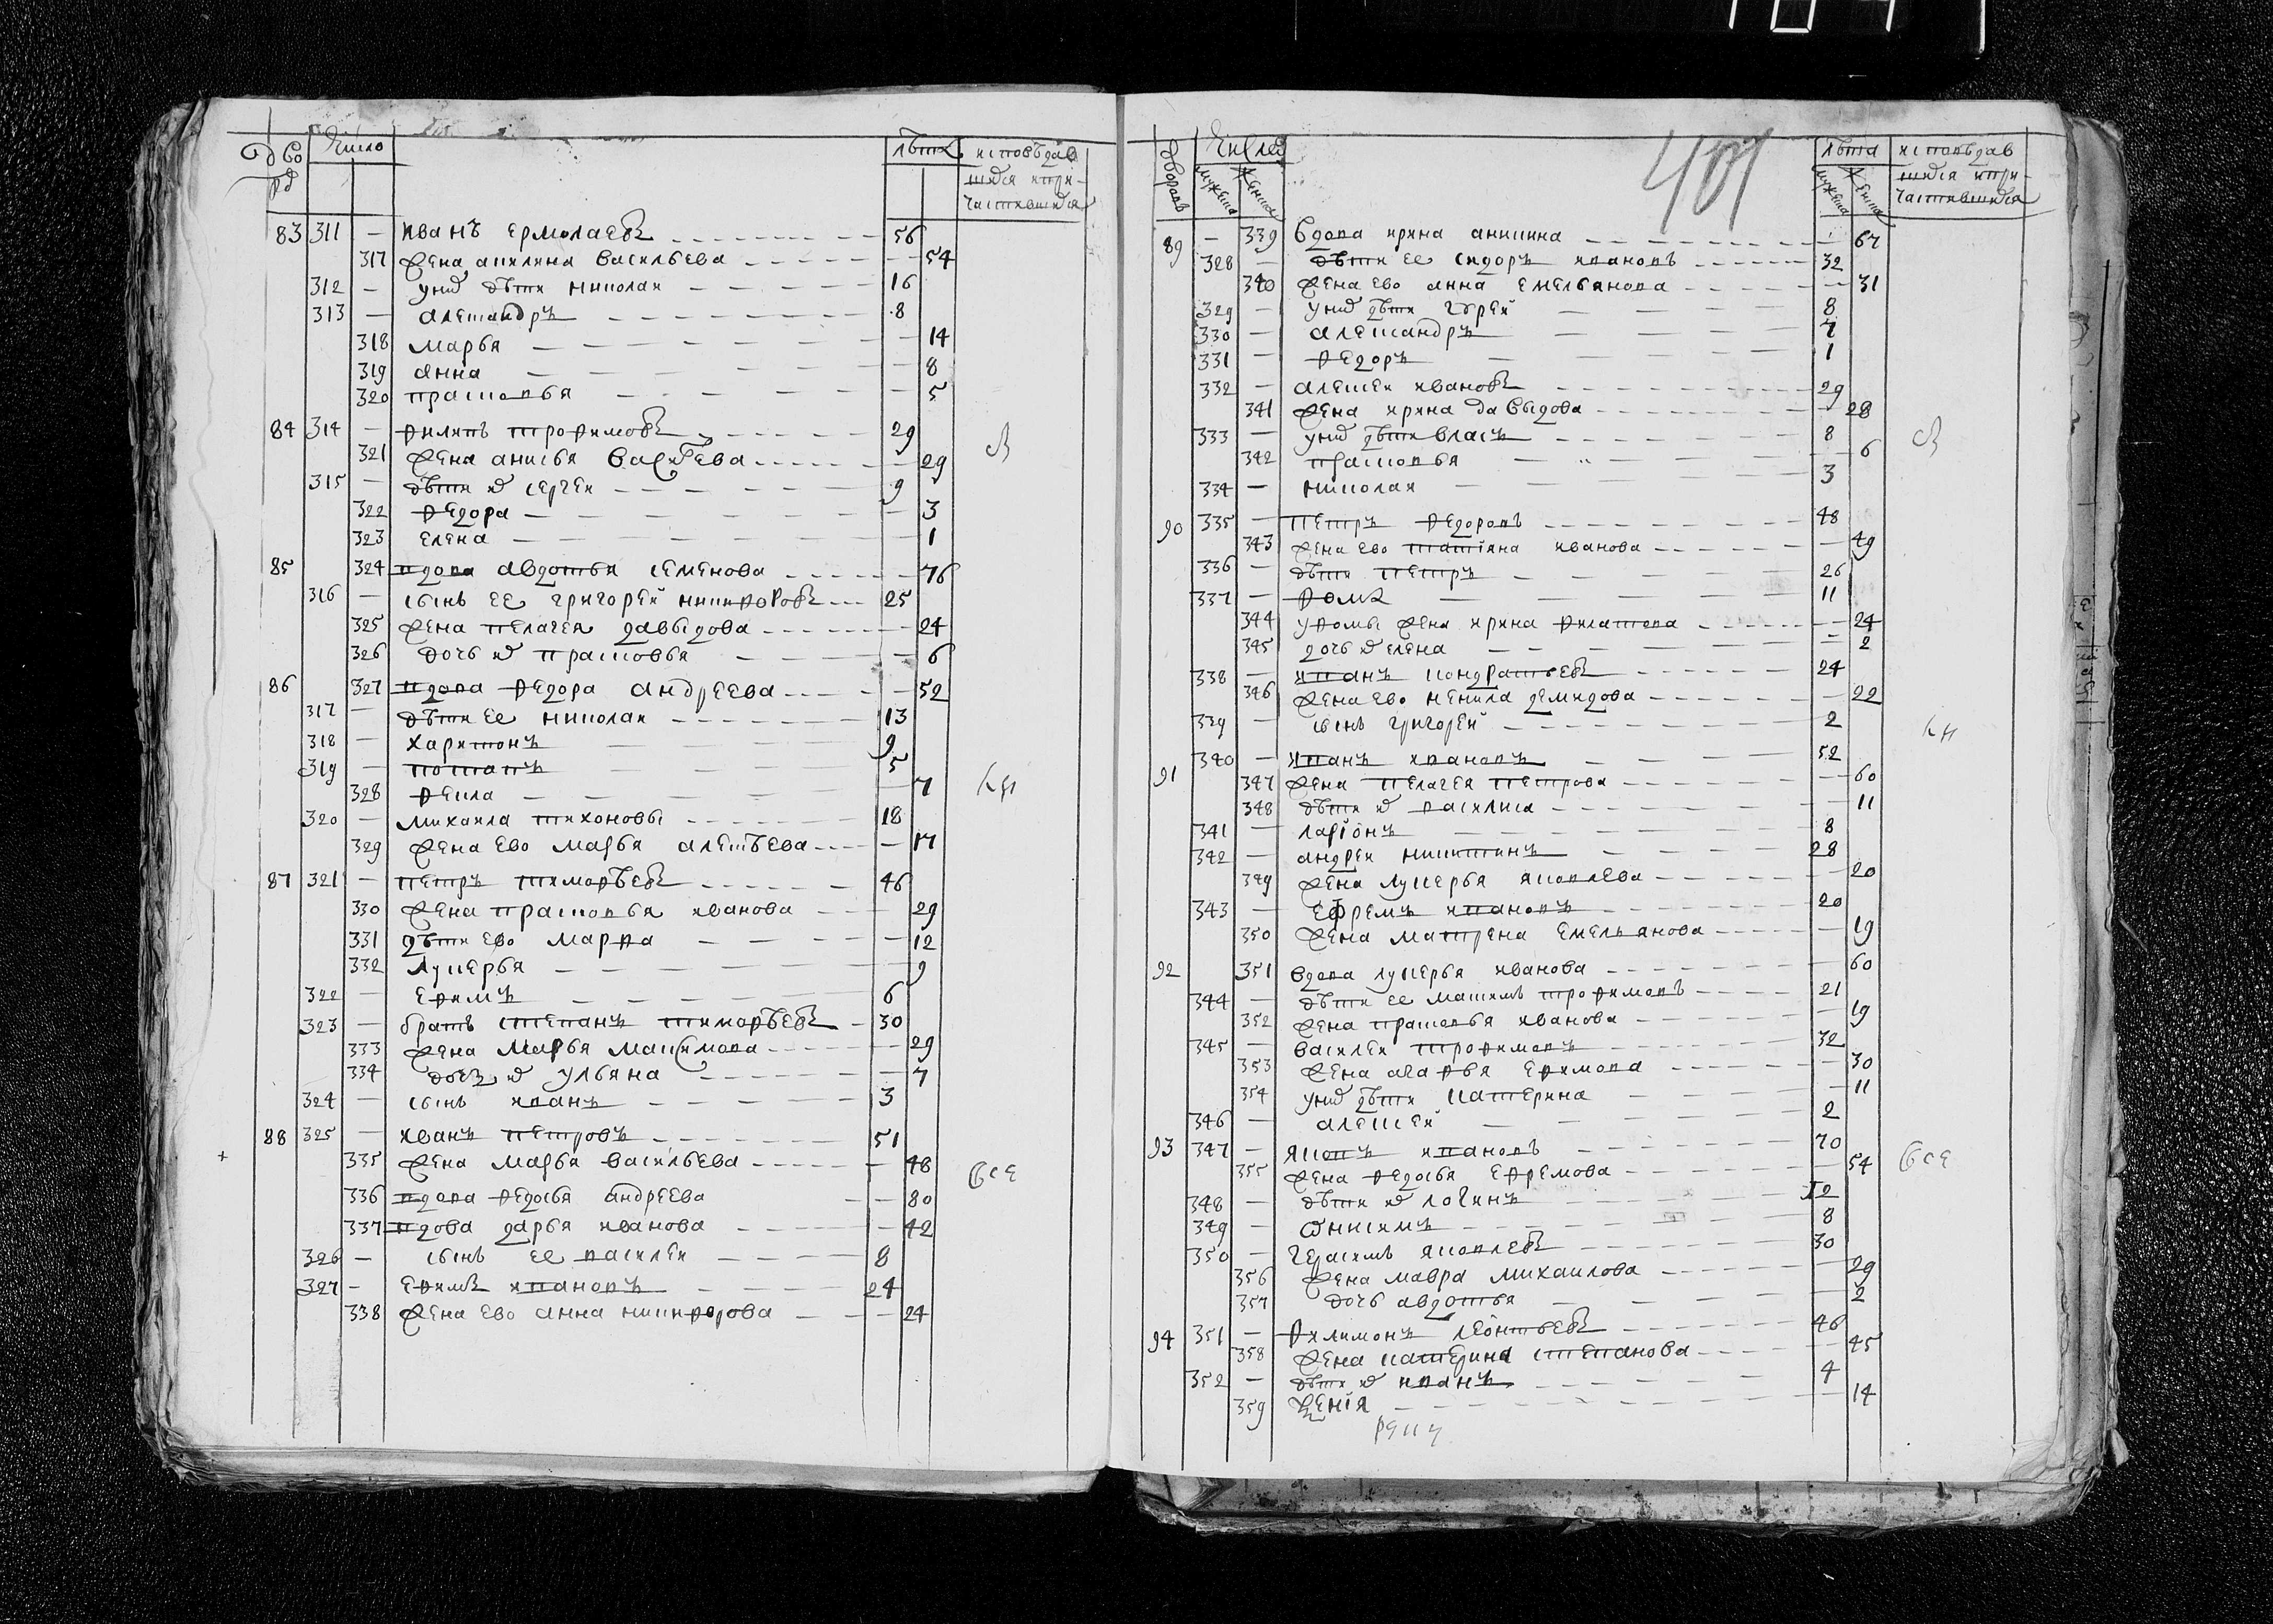 Дворы Число лѣта исповѣдав
шияся ипри-
частившияся
83 311 — иванъ ермолаевъ 56
317 жена акилина васильева — 54
312 — униⷯ дѣти николаи 16
313 — алеѯандръ 8
318 марья — 14
319 анна — 8
320 прасковья — 5
84 314 — филипъ трофимовъ 29
321 жена анисья — 29
315 — дѣти иⷯ сергеи 9
322 федора — 3
323 елена — 1
85 324 вдова авдотья семенова — 76
316 — сынъ ее григорей никифоровъ 25
325 жена пелагея давыдова — 24
326 дочь иⷯ прасковья — 6
86 327 вдова федора андреева — 52
317 — дѣти ее николаи 13
318 — харитонъ 9
319 — потапъ 5
328 фекла — 7
320 — михаила тихоновы 18
329 жена ево марья алексѣева — 17
87 321 — петръ тимофѣевъ 46
330 жена прасковья иванова — 29
331 дѣти ево марфа — 12
332 лукерья — 9
322 — ефимъ 6
323 — братъ степанъ тимофѣевъ 30
333 жена марья максимова — 29
334 дочь иⷯ ульяна — 7
324 — сынъ иванъ 3
88 325 — иванъ петровъ 51
335 жена марья васильева — 48
336 вдова федосья андреева — 80
337 вдова дарья иванова — 42
326 — сынъ ее василеи 8
327 — ефимъ ивановъ 24
338 жена ево анна никифорова — 24
все
401
дворовъ мужеска женска лѣта мужеска женска исповѣдав
шияся ипри-
частившияся
89 — 339 вдова ирина аникина — 67
328 — дѣти ее сидоръ ивановъ 32
340 жена ево анна емельянова — 31
329 — униⷯ дѣти гурей 8
330 — алеѯандръ 7
331 — федоръ 1
332 — алексеи ивановъ 29
341 жена ирина давыдова — 28
333 — униⷯ дѣти власъ 8
342 прасковья — 6
334 — николаи 3
90 335 — петръ федоровъ 48
343 жена ево татіяна иванова — 49
336 — дѣти петръ 26
337 — фома 11
344 уфомы жена ирина филатова — 24
345 дочь иⷯ елена — 2
338 — иванъ кондратьевъ 24
346 жена ево ненила демидова — 22
339 — сынъ григорей 2
91 340 — иванъ ивановъ 52
347 жена пелагея петрова — 60
348 дѣти иⷯ василиса — 11
341 — ларіонъ 8
342 — андреи никитинъ 28
349 жена лукерья яковлева — 20
343 — ефремъ ивановъ 20
350 жена матрена емельянова — 19
92 351 вдова лукерья иванова — 60
344 — дѣти ее максимъ трофимовъ 21
352 жена прасковья иванова — 19
345 — василеи трофимовъ 32
353 жена агафья ефимова — 30
354 униⷯ дѣти катерина — 11
346 — алексей 2
93 347 — яковъ ивановъ 70
355 жена федосья ефремова — 54
348 — дѣти иⷯ логинъ 12
349 — ѡнисимъ 8
350 — герасимъ яковлевъ 30
356 жена мавра михаилова — 29
357 дочь авдотья — 2
94 351 — филимонъ леонтьевъ 46
358 жена катерина степанова — 45
352 — дѣти иⷯ иванъ 4
359 ѯенія — 14
все